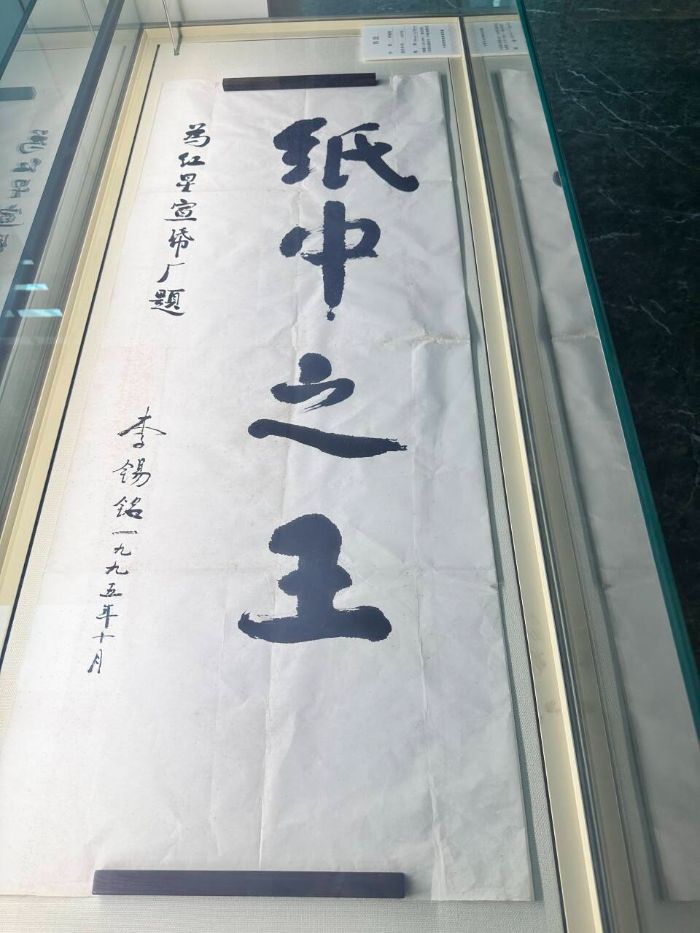 纸中之王
为红星宣纸厂题
李锡铭一九九五年十月